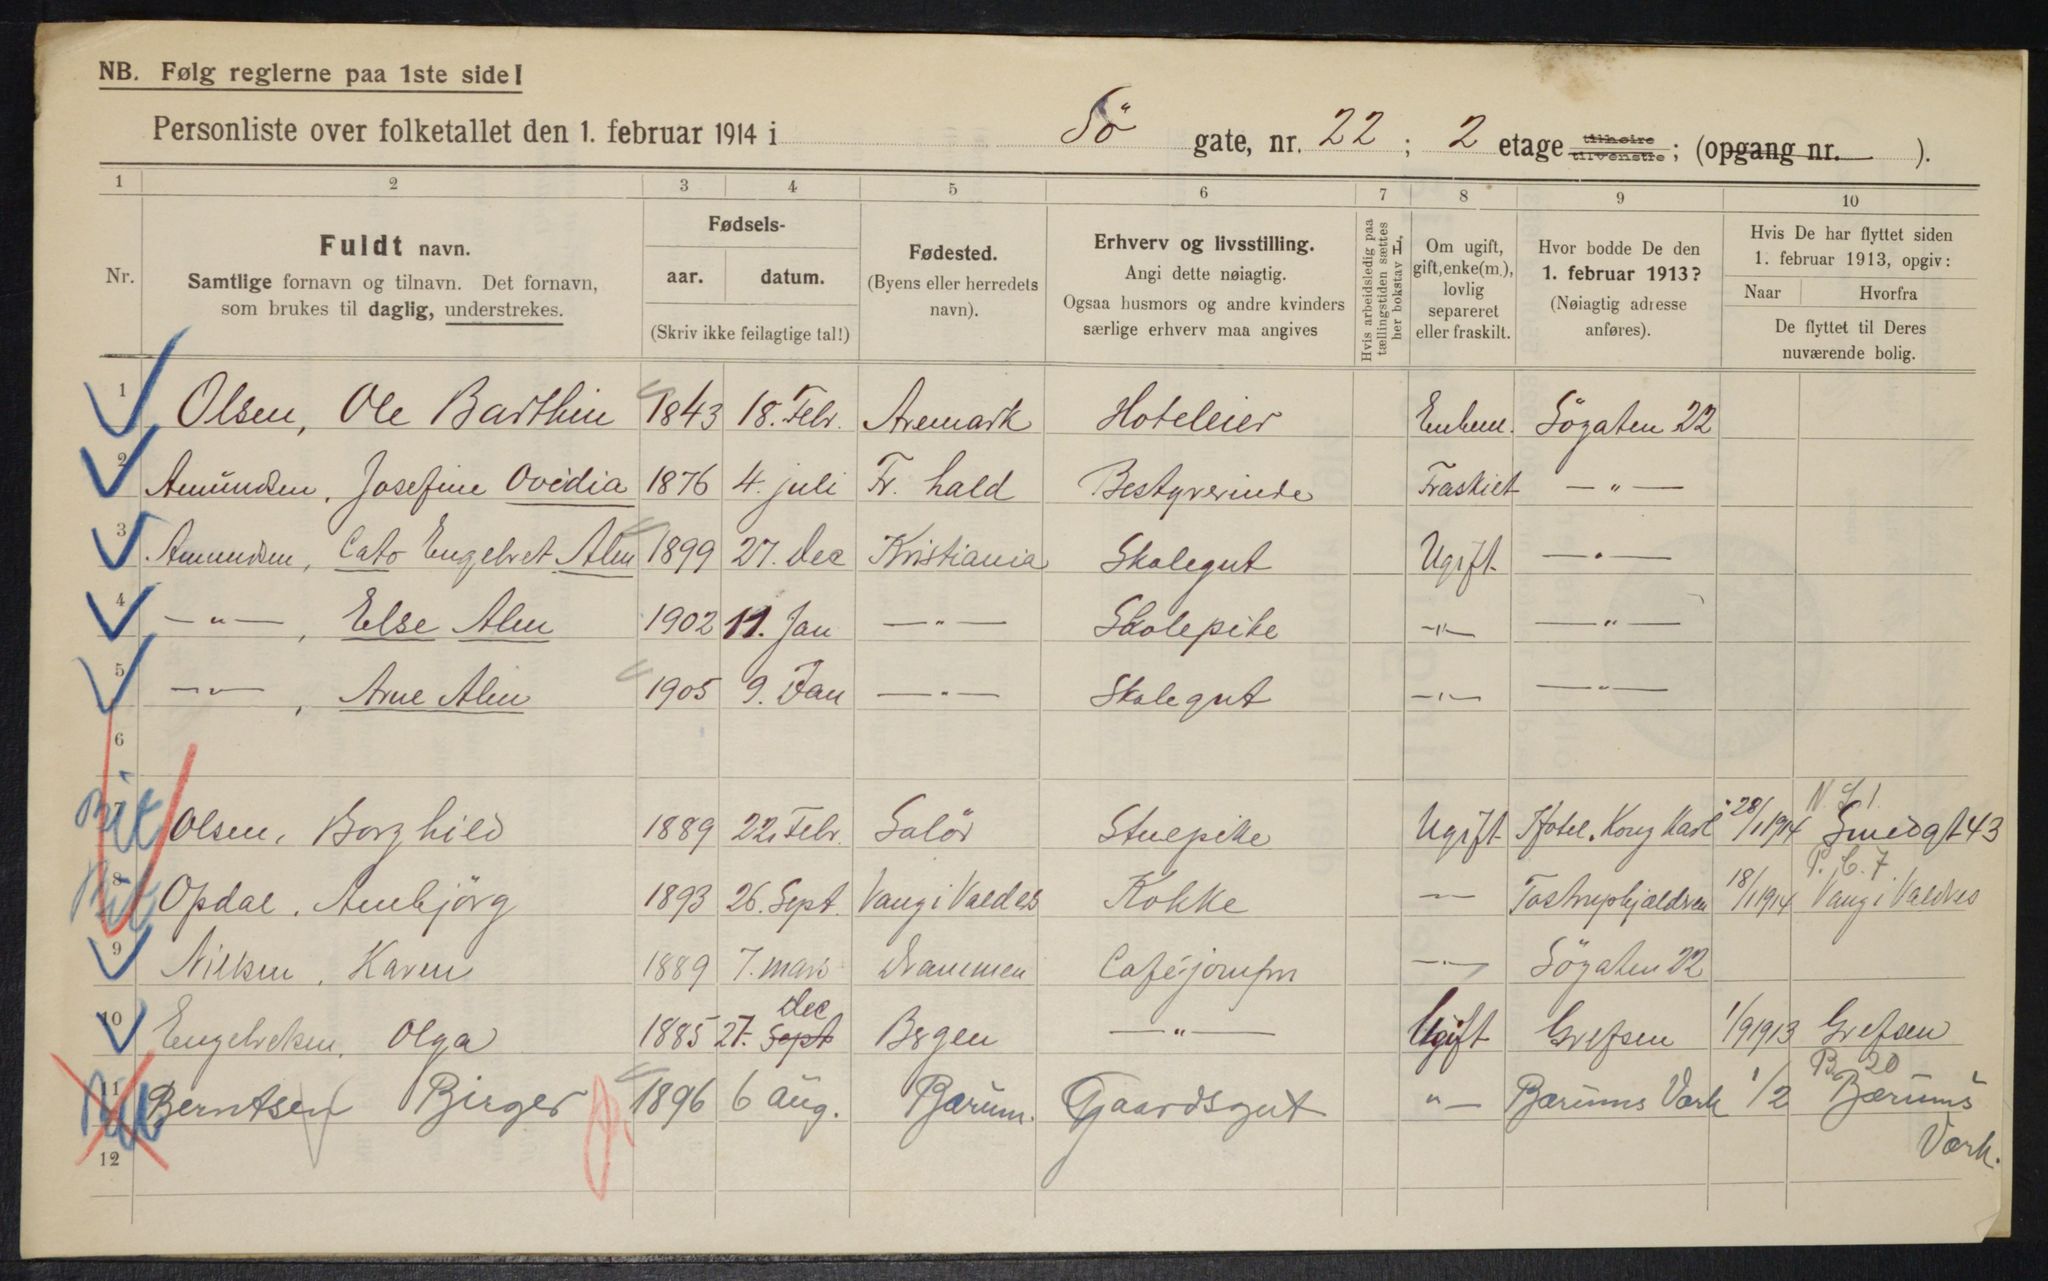 NB. Følg reglerne paa 1ste side!
Personliste over folketallet den 1. februar 1914 i Sö gate, nr. 22 ; 2 etage tilhøire tilvenstre ; (opgang nr. ).
1 2 3 4 5 6 7 8 9 10
Nr.
Fuldt navn.
Samtlige fornavn og tilnavn. Det fornavn,
som brukes til daglig, understrekes.
Fødsels-
aar. datum.
(Skriv ikke feilagtige tal!)
Fødested.
(Byens eller herredets
navn).
Erhverv og livsstilling.
Angi dette nøiagtig.
Ogsaa husmors og andre kvinders
særlige erhverv maa angives
Hvis arbeidsledig paa
tællingstiden sættes
her bokstav L.
Om ugift,
gift, enke(m.),
lovlig
separeret
eller fraskilt.
Hvor bodde De den
1. februar 1913?
(Nøiagtig adresse
anføres).
Hvis De har flyttet siden
1. februar 1913, opgiv:
Naar Hvorfra
De flyttet til Deres
nuværende bolig.
1 Olsen, Ole Barthin 1843 18. Febr. Aremark Hoteleier Enkem. Sögaten 22
2 Amundsen, Josefine Ovidia 1876 4. juli Fr. hald Bestyrerinde Fraskilt — " —
3 Amundsen, Cato Engebret Alm 1899 27. Dec Kristiania Skolegut Ugift — " —
4 — " —, Else Alm 1902 11. Jan — " — Skolepike — " — — " —
5 — " —, Arne Alm 1905 9. Jan — " — Skolegut — " — — " —
6
N 51.
7 Olsen, Borghild 1889 22. Febr. Solör Stuepike Ugift Hotel Kong Karl 28/1 1914 Smedgt 43
P. C. 7
8 Opdal, Ambjörg 1893 26. Sept. Vang i Valdres Kokke — " — 18/1 1914 Vang i Valdres
9 Nilsen, Karen 1889 7. mars Drammen Caféjomfru — " — Sögaten 22
Dec
10 Engebretsen, Olga 1885 27. Sept Bergen — " — Ugift Grefsen 1/9 1913 Grefsen
B 20
11 Berntsen Birger 1896 6 aug. Bærum. Gaardsgut " — Bærums Værk 1/2 Bærums
Værk.
12